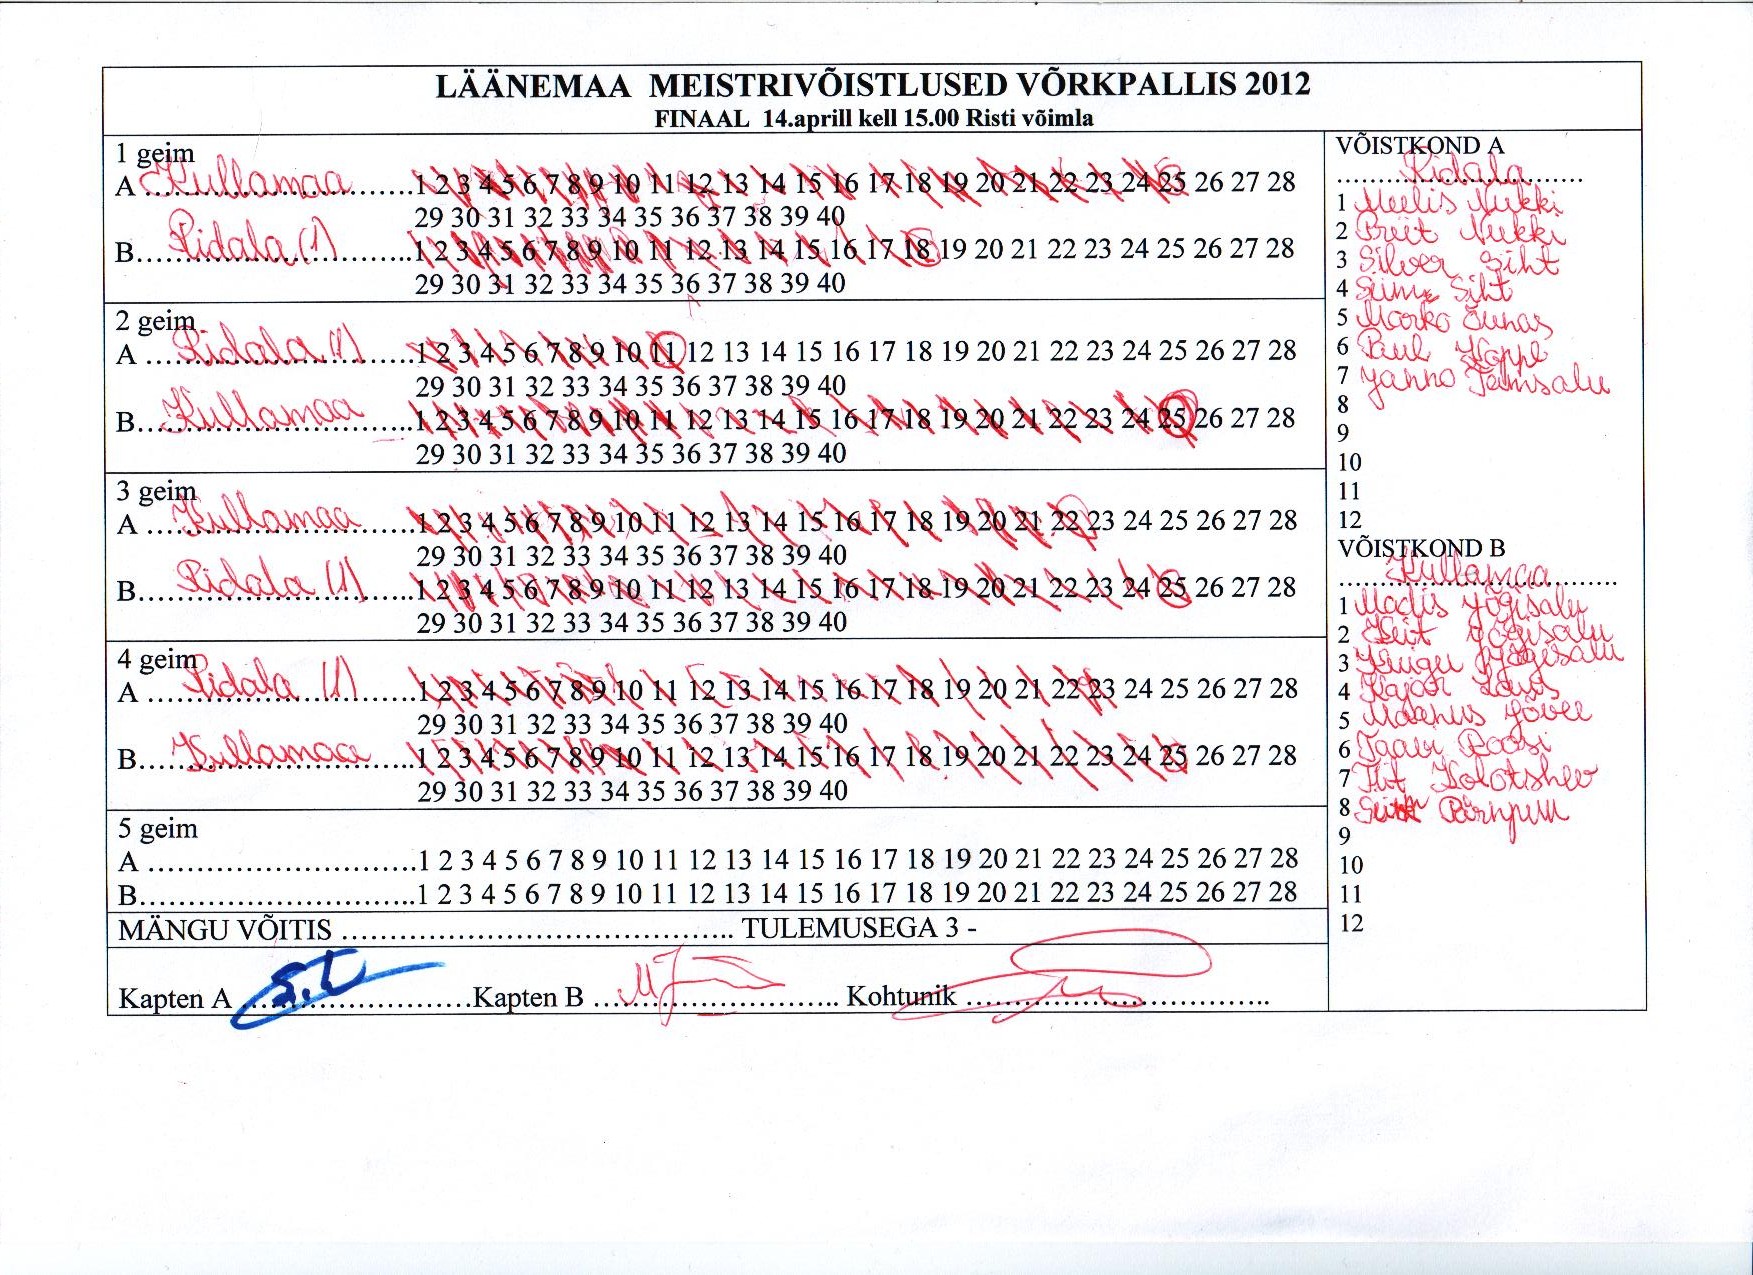 LÄÄNEMAA MEISTRIVÕISTLUSED VÕRKPALLIS 2012
FINAAL 14.aprill kell 15.00 Risti võimla
1 geim
A Kullamaa 1 2 3 4 5 6 7 8 9 10 11 12 13 14 15 16 17 18 19 20 21 22 23 24 25 26 27 28
29 30 31 32 33 34 35 36 37 38 39 40
B Ridala (1) 1 2 3 4 5 6 7 8 9 10 11 12 13 14 15 16 17 18 19 20 21 22 23 24 25 26 27 28
29 30 31 32 33 34 35 36 37 38 39 40
2 geim
A Ridala (1) 1 2 3 4 5 6 7 8 9 10 11 12 13 14 15 16 17 18 19 20 21 22 23 24 25 26 27 28
29 30 31 32 33 34 35 36 37 38 39 40
B Kullamaa 1 2 3 4 5 6 7 8 9 10 11 12 13 14 15 16 17 18 19 20 21 22 23 24 25 26 27 28
29 30 31 32 33 34 35 36 37 38 39 40
3 geim
A Kullamaa 1 2 3 4 5 6 7 8 9 10 11 12 13 14 15 16 17 18 19 20 21 22 23 24 25 26 27 28
29 30 31 32 33 34 35 36 37 38 39 40
B Ridala (1) 1 2 3 4 5 6 7 8 9 10 11 12 13 14 15 16 17 18 19 20 21 22 23 24 25 26 27 28
29 30 31 32 33 34 35 36 37 38 39 40
4 geim
A Ridala (1) 1 2 3 4 5 6 7 8 9 10 11 12 13 14 15 16 17 18 19 20 21 22 23 24 25 26 27 28
29 30 31 32 33 34 35 36 37 38 39 40
B Kullamaa 1 2 3 4 5 6 7 8 9 10 11 12 13 14 15 16 17 18 19 20 21 22 23 24 25 26 27 28
29 30 31 32 33 34 35 36 37 38 39 40
5 geim
A ............................1 2 3 4 5 6 7 8 9 10 11 12 13 14 15 16 17 18 19 20 21 22 23 24 25 26 27 28
B.............................1 2 3 4 5 6 7 8 9 10 11 12 13 14 15 16 17 18 19 20 21 22 23 24 25 26 27 28
MÄNGU VÕITIS ........................................ TULEMUSEGA 3 -
Kapten A Kapten B Kohtunik
VÕISTKOND A
Ridala
1 Meelis Nukki
2 Priit Nukki
3 Silver Siht
4 Siim Siht
5 Marko Õunas
6 Paul Koppel
7 Janno Tamsalu
8
9
10
11
12
VÕISTKOND B
Kullamaa
1 Madis Jõgisalu
2 Keit Jõgisalu
3 Jõgisalu
4 Kajar
5 Maanus Jõvee
6 Taavi Roosi
7 Tiit Kolotshev
8 Pärnpuu
9
10
11
12